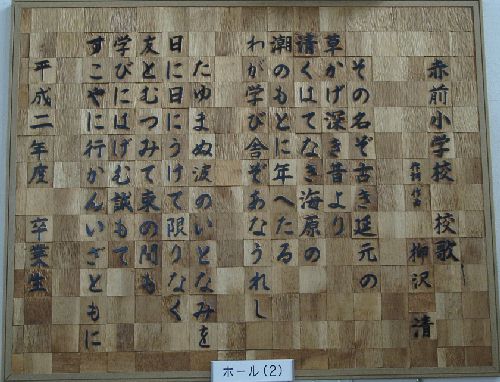 赤前小学校 校歌
作詞 作曲 柳沢 清
その名ぞ古き延元の
草かげ深き昔より
清くはてなき海原の
潮のもとに年へたる
わが学び舎ぞあなうれし
たゆまぬ波のいとなみを
日に日にうけて限りなく
友とむつみて束の間も
学びにはげむ誠もて
すこやに行かんいざともに
平成二年度 卒業生
ホール(2)